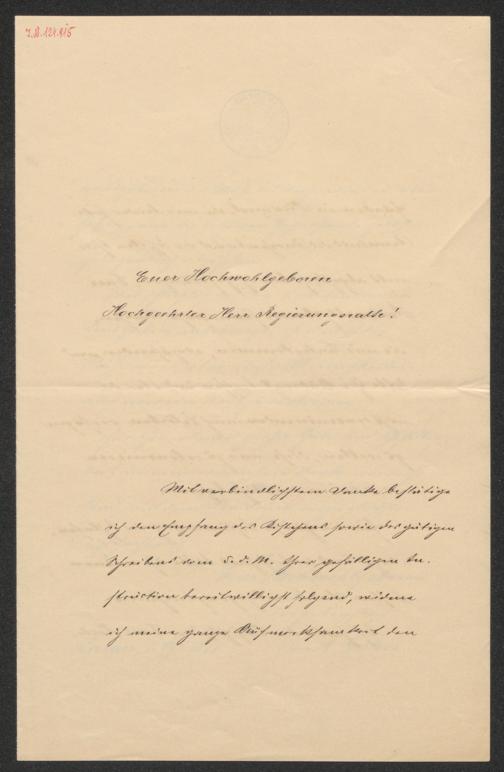 I.N. 121.915
Euer Hochwohlgeboren
Hochgeehrter Herr Regierungsrathe!
Mit verbindlichstem Danke bestätige
ich den Empfang des Kistchens sowie des gütigen
Schreibens vom 5. d. M. Ihrer gefälligen In-
struction bereitwilligst folgend, widme
ich meine ganze Aufmerksamkeit den